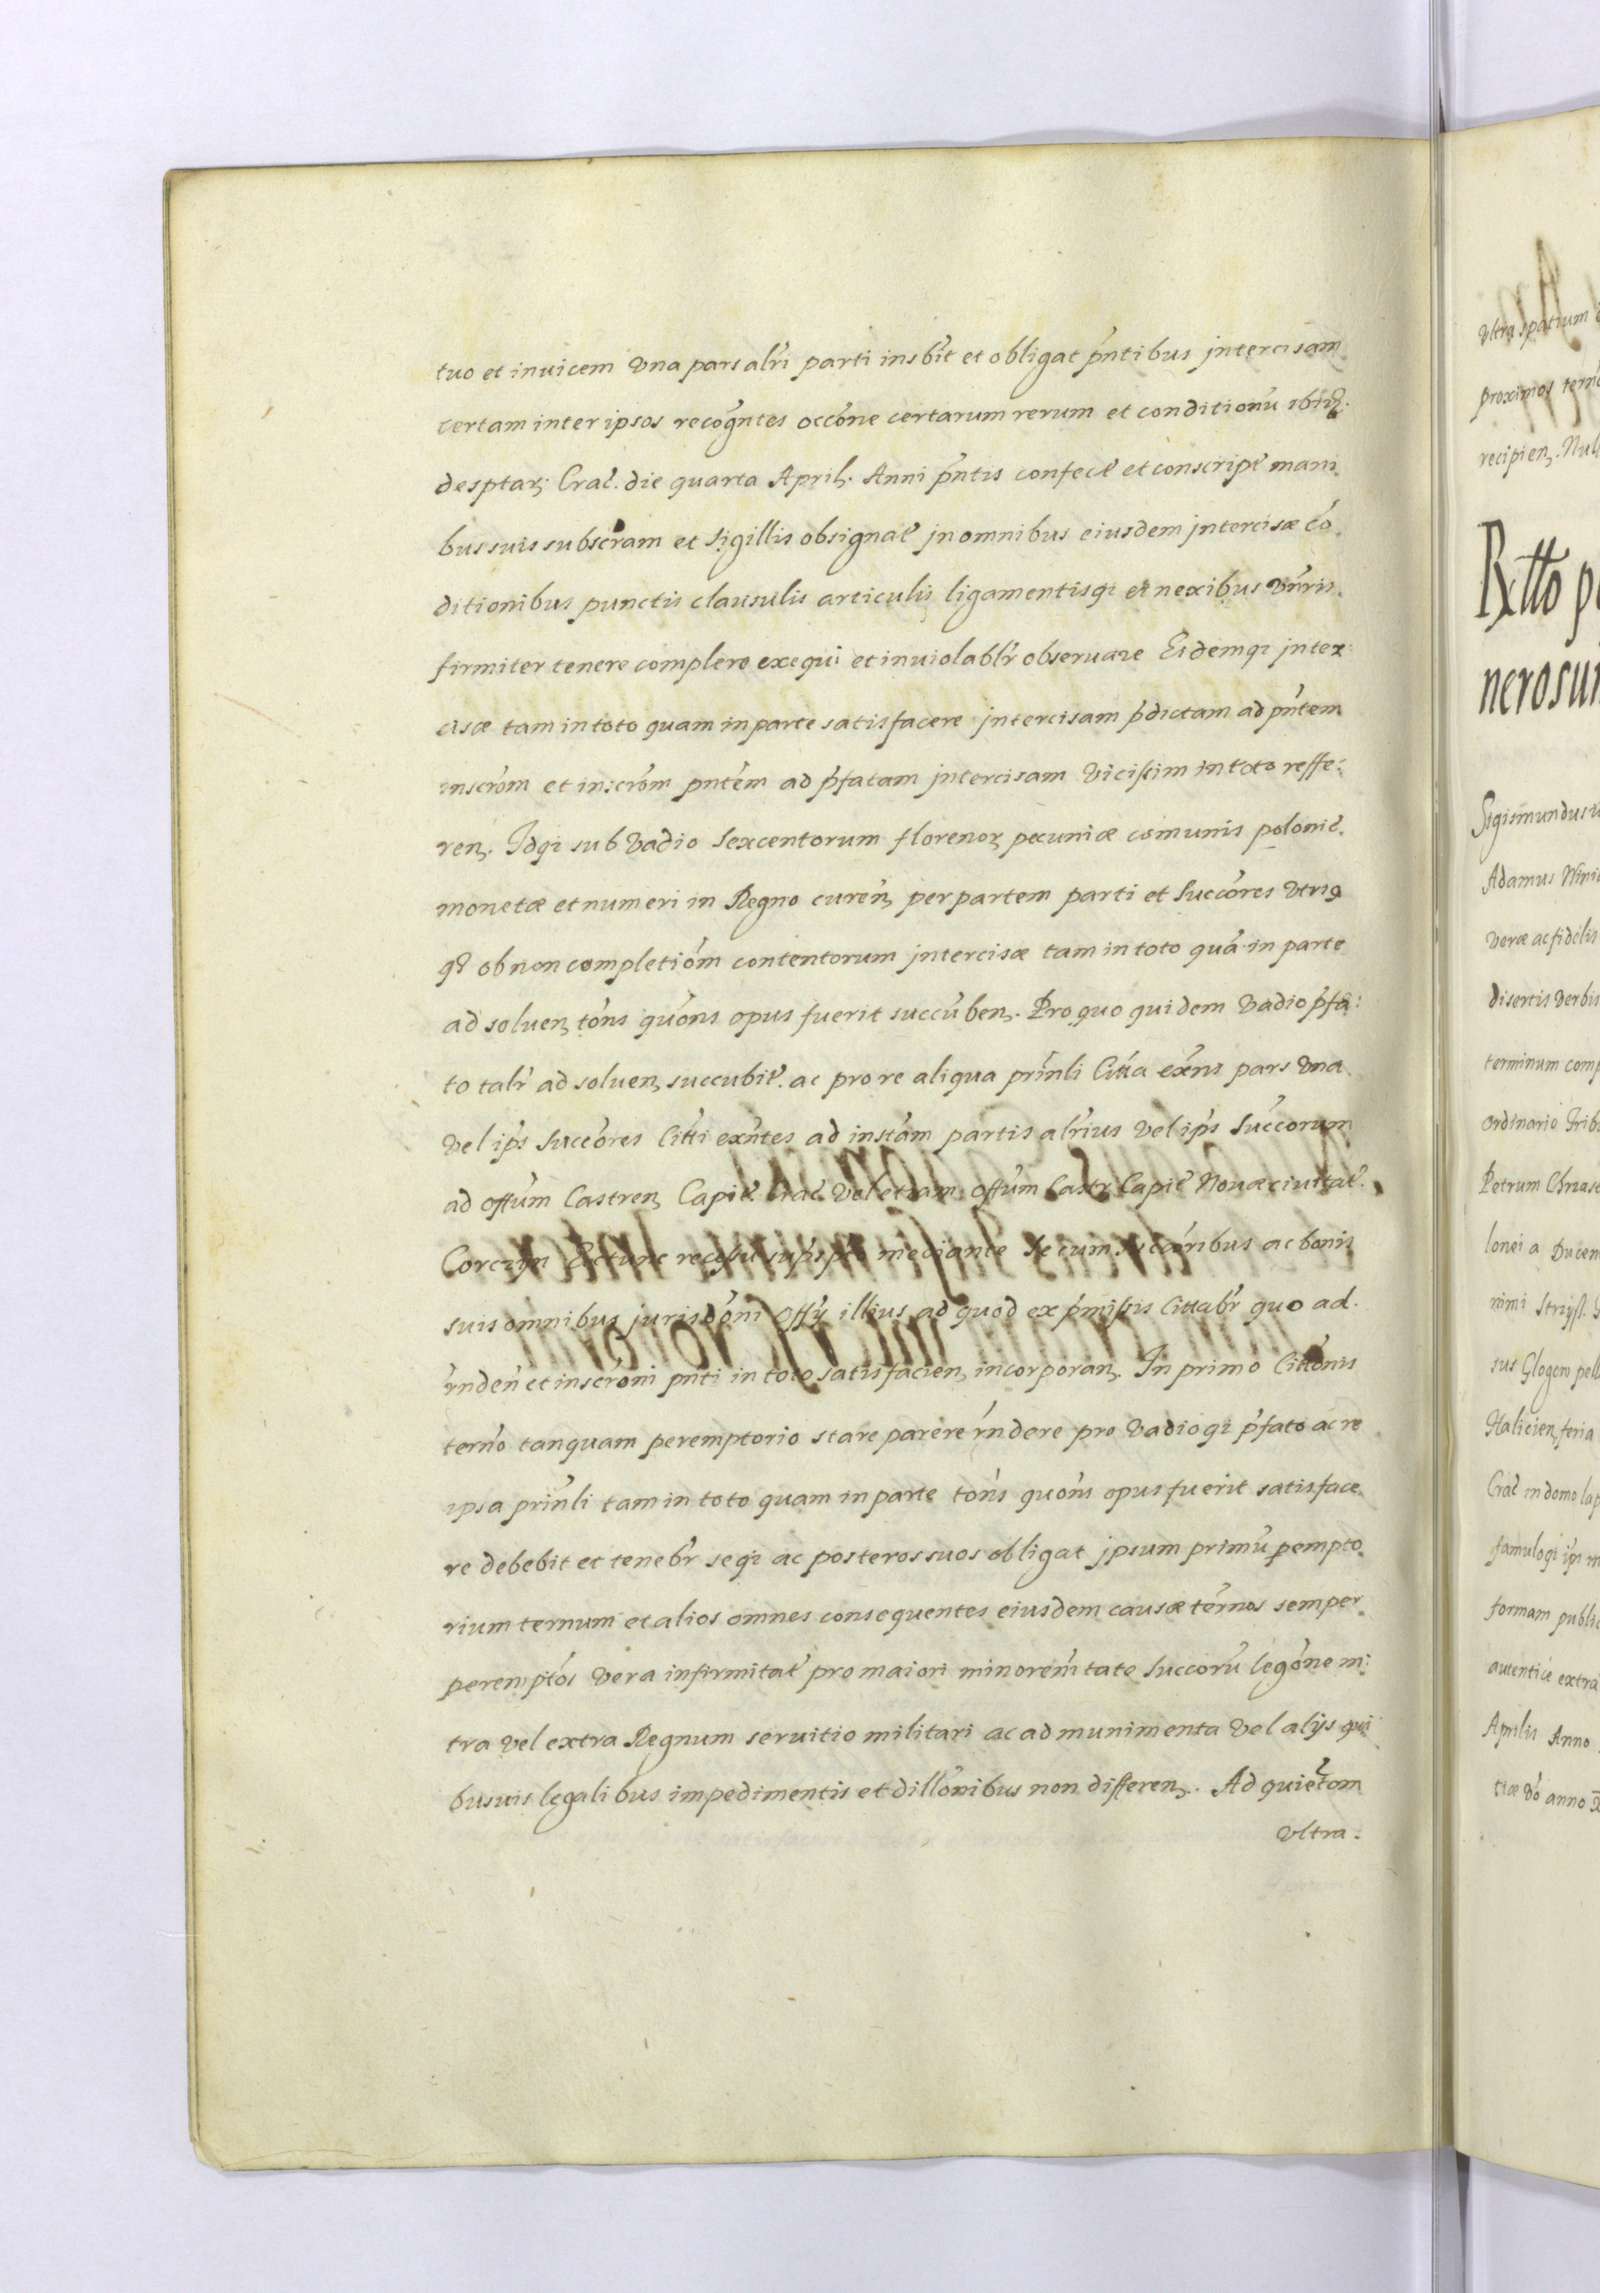 tuo et inuicem Vna pars alri parti insbit et obligat pntibus jntercisam
certam inter ipsos recogntes occone certarum rerum et conditionu ibid.
desptar, Crac. die quarta April. Anni pntis confect et conscript mani
bus suis subscram et sigillis obsignat jn omnibus eiusdem jntercisæ co
ditionibus punctis clausulis articulis ligamentisq et nexibus vnris
firmiter tenere complere exequi et inuiolablr obseruare Eidemq jnter:
cisæ tam in toto quam in parte satisfacere jntercisam pdictam ad pntem
inscrom et inscrom pntem ad pfatam jntercisam Vicissim in toto reffe:
ren. Idq sub Vadio sexcentorum florenor pecuniæ comunis polonic.
monetæ et numeri in Regno curen, per partem parti et succores vtrig
q ob non completiom contentorum jntercisæ tam in toto qua in parte
ad soluen, tons quons opus fuerit succuben. Pro quo quidem Vadio pfa:
to talr ad soluen, succubit. ac pro re aliqua prinli Citta exns pars Vna
Vel ips succores Citti exntes ad instam partis alrius Vel ips succorum
ad offum Castren, Capit Crac Vel etiam offum Castr Capit Nouæciuitat.
Corczyn Ectunc recessu mediante se cum succoribus ac bonis
suis omnibus jurisdoni offy illius ad quod ex pmissis Cittabr quo ad
rnden et inscroni pnti in toto satisfacien, incorporan. In primo Cittonis
terno tanquam peremptorio stare parere rndere pro Vadioq pfato ac re
ipsa prinli tam in toto quam in parte tons quons opus fuerit satisface
re debebit et tenebr seq ac posteros suos obligat jpsum primu pempto
rium ternum et alios omnes consequentes eiusdem causæ ternos semper
peremptos Vera infirmitat pro maiori minoremtate succoru legone in:
tra Vel extra Regnum seruitio militari ac ad munimenta Vel alijs qui
busuis legalibus impedimentis et dillonibus non differen. Ad quietom
Vltra.
Vltra spatium
proximos
recipien. Nul
Rxtto
nerosu
Sigismundus
Adamus
veræ ac fidelis
disertis verbis
terminum comp
ordinario Trib
Petrum Chras
lonei a Ducen
nomi
sus Glogow
Halicien, feria
Crac in domo lap
famuloq ips m
formam public
autentice extra
Aprilis Anno
tiæ Vo anno